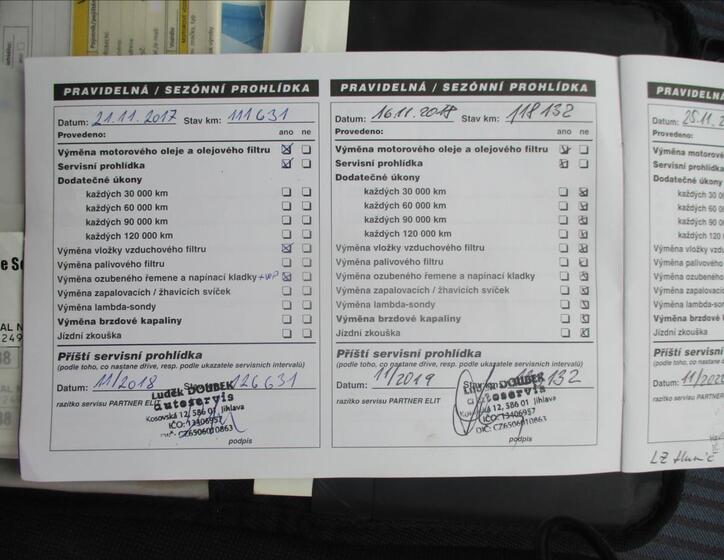 PRAVIDELNÁ / SEZÓNNÍ PROHLÍDKA
Datum: 21.11.2017 Stav km: 111 631
Provedeno: ano ne
Výměna motorového oleje a olejového filtru
Servisní prohlídka
Dodatečné úkony
každých 30 000 km
každých 60 000 km
každých 90 000 km
každých 120 000 km
Výměna vložky vzduchového filtru
Výměna palivového filtru
Výměna ozubeného řemene a napínací kladky +WP
Výměna zapalovacích / žhavicích svíček
Výměna lambda-sondy
Výměna brzdové kapaliny
Jízdní zkouška
Příští servisní prohlídka
(podle toho, co nastane dříve, resp. podle ukazatele servisních intervalů)
Datum: 11/2018 126 631
razítko servisu PARTNER ELIT
Luděk DOUBEK
autoservis
Kosovská 12, 586 01 Jihlava
IČO: 13406957
DIČ: CZ6506010863
podpis
PRAVIDELNÁ / SEZÓNNÍ PROHLÍDKA
Datum: 16.11.2018 Stav km: 118 132
Provedeno: ano ne
Výměna motorového oleje a olejového filtru
Servisní prohlídka
Dodatečné úkony
každých 30 000 km
každých 60 000 km
každých 90 000 km
každých 120 000 km
Výměna vložky vzduchového filtru
Výměna palivového filtru
Výměna ozubeného řemene a napínací kladky
Výměna zapalovacích / žhavicích svíček
Výměna lambda-sondy
Výměna brzdové kapaliny
Jízdní zkouška
Příští servisní prohlídka
(podle toho, co nastane dříve, resp. podle ukazatele servisních intervalů)
Datum: 11/2019 132
razítko servisu PARTNER ELIT
Luděk DOUBEK
autoservis
Kosovská 12, 586 01 Jihlava
IČO: 13406957
DIČ: CZ6506010863
podpis
PRAVIDELN
Datum: 25.11.2
Provedeno:
Výměna motorov
Servisní prohlí
Dodatečné úkony
každých 30
každých 60
každých 90
každých 12
Výměna vložky v
Výměna palivové
Výměna ozubené
Výměna zapalova
Výměna lambda-
Výměna brzdov
Jízdní zkouška
Příští servis
(podle toho, co nasta
Datum: 11/202
razítko servisu PART
LZ